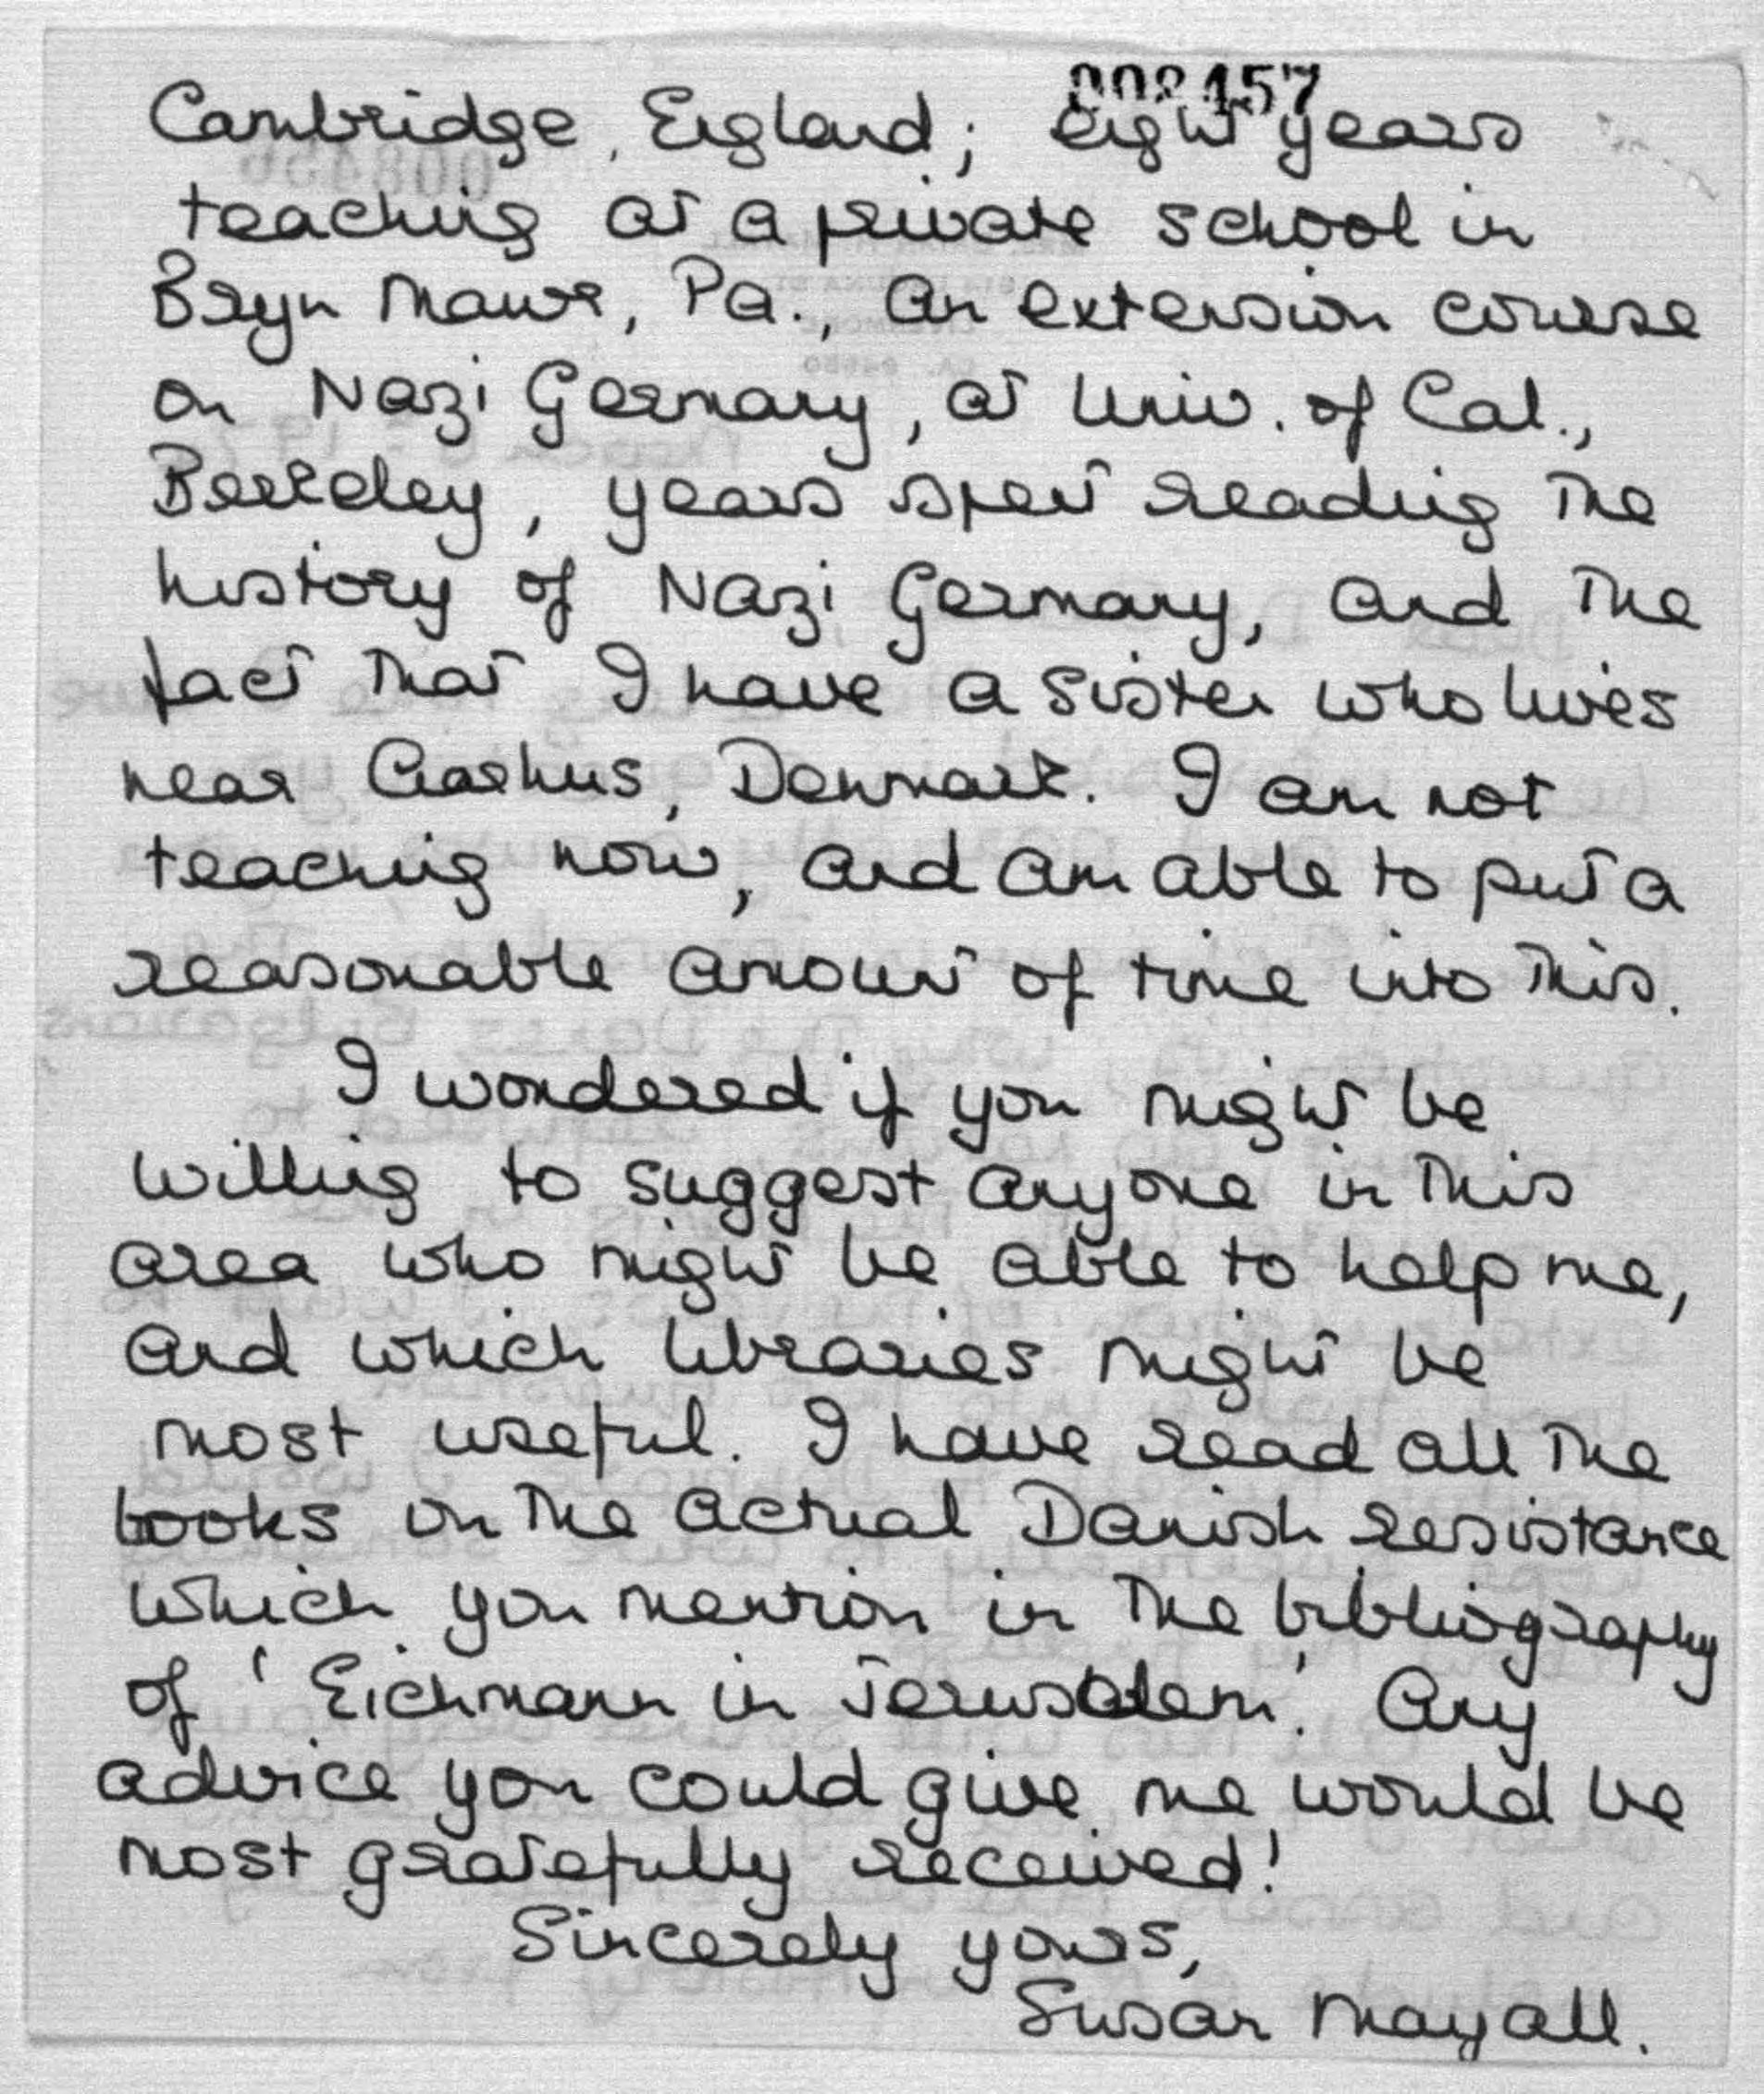 002457
Cambridge, England; eight years
teaching at a private school in
Bryn Mawr, Pa., an extension course
on Nazi Germany, at Univ. of Cal.,
Berkeley, years spent reading the
history of Nazi Germany, and the
fact that I have a sister who lives
near Aarhus, Denmark. I am not
teaching now, and am able to put a
reasonable amount of time into this.
I wondered if you might be
willing to suggest anyone in this
area who might be able to help me,
and which libraries might be
most useful. I have read all the
books on the actual Danish resistance
which you mention in the bibliography
of 'Eichmann in Jerusalem'. Any
advice you could give me would be
most gratefully received!
Sincerely yours,
Susan Mayall.